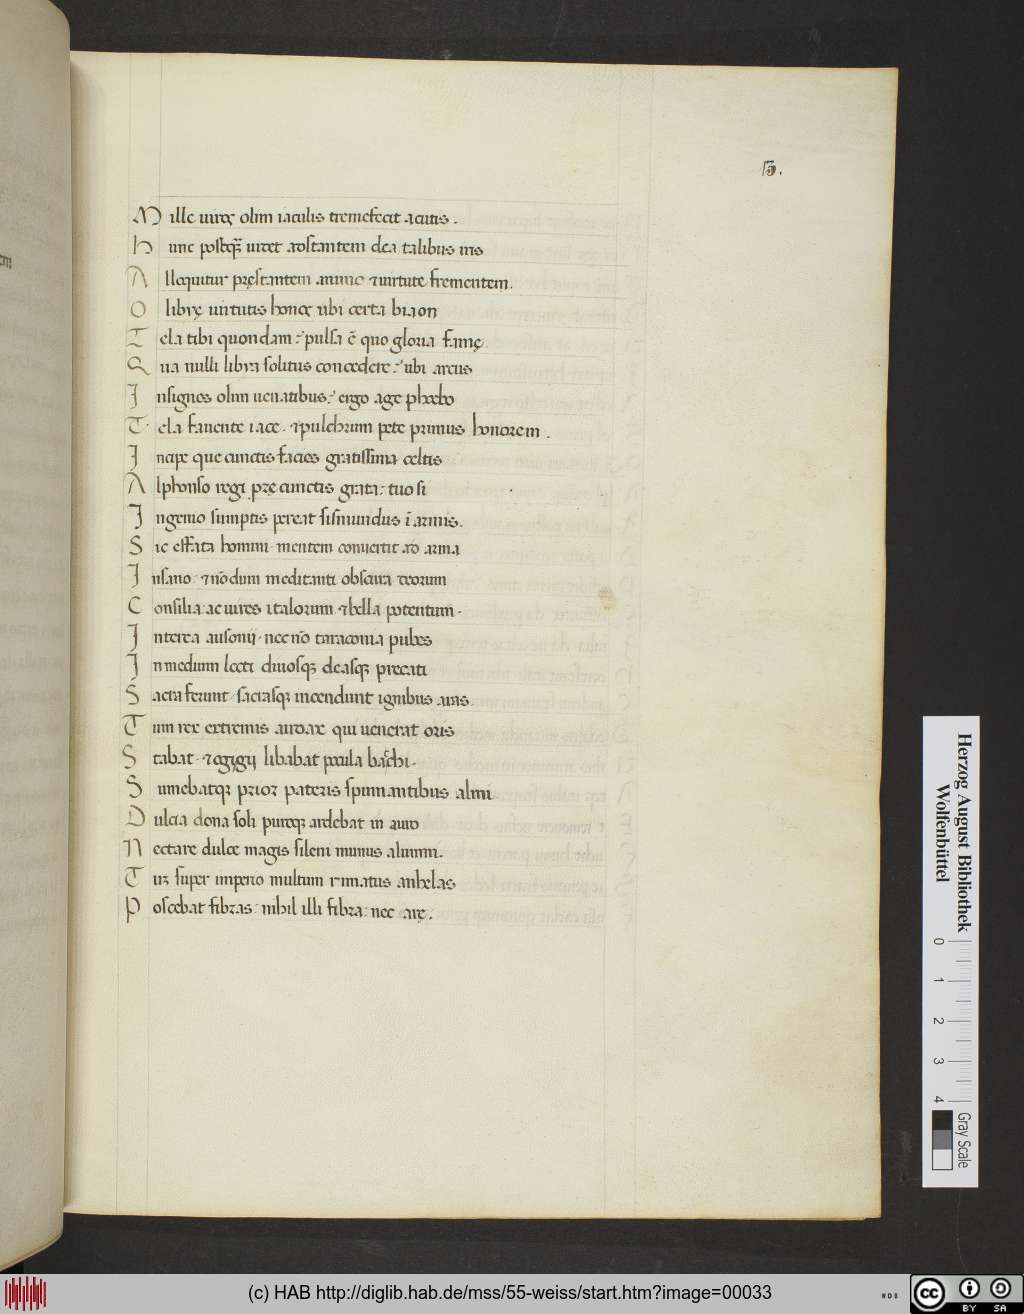 13.
Mille uiroꝝ olim iaculis tremefecit acutis.
hunc postq̃ uidet adstantem dea talibus in&s
Alloquitur pręstantem animo &uirtute frementem.
O librę uirtutis honoꝝ ubi certa biaon
Tela tibi quondam: pulsa ē quo gloria famę.
Qua nulli libra solitus concedere: ubi arcus
Insignes olim uenatibus: ergo age phoebo
Tela fauente iace. &pulchrum pete primus honorem.
Incipe que cunctis facies gratissima celtis
Alphonso regi prę cunctis grata: tuo si
Ingenio sumptis pereat sismundus ī armis.
Sic effata homini mentem conuertit ad arma
Insano: &nōdum meditanti obscura deorum
Consilia: ac uires italorum &bella potentum.
Interea ausonij. nec nō taraconia pubes
In medium lecti diuosq; deasq; precati
Sacra ferunt sacrasq; incendunt ignibus aras.
Tum rex extremis audax qui uenerat oris
Stabat. &ogygij libabat pocula bacchi.
Sumebatq; prior pateris spumantibus almi
Dulcia dona soli puroq; ardebat in auro
Nectare dulce magis sileni munus alumni.
Tuꝫ super imperio multum rimatus anhelas
Poscebat fibras: nihil illi fibra: nec arę.
Herzog August Bibliothek
Wolfenbüttel
0 1 2 3 4
Gray Scale
(c) HAB http://diglib.hab.de/mss/55-weiss/start.htm?image=00033
cc BY SA